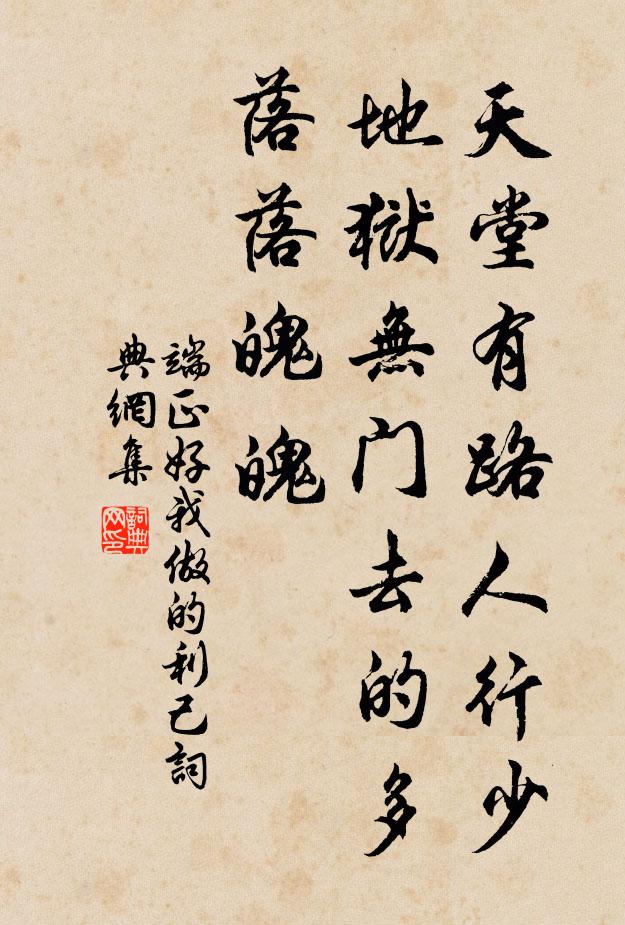 天堂有路人行少
地獄無門去的多
落落魄魄
端正好我做的利己詞
典網集
詞典
网印